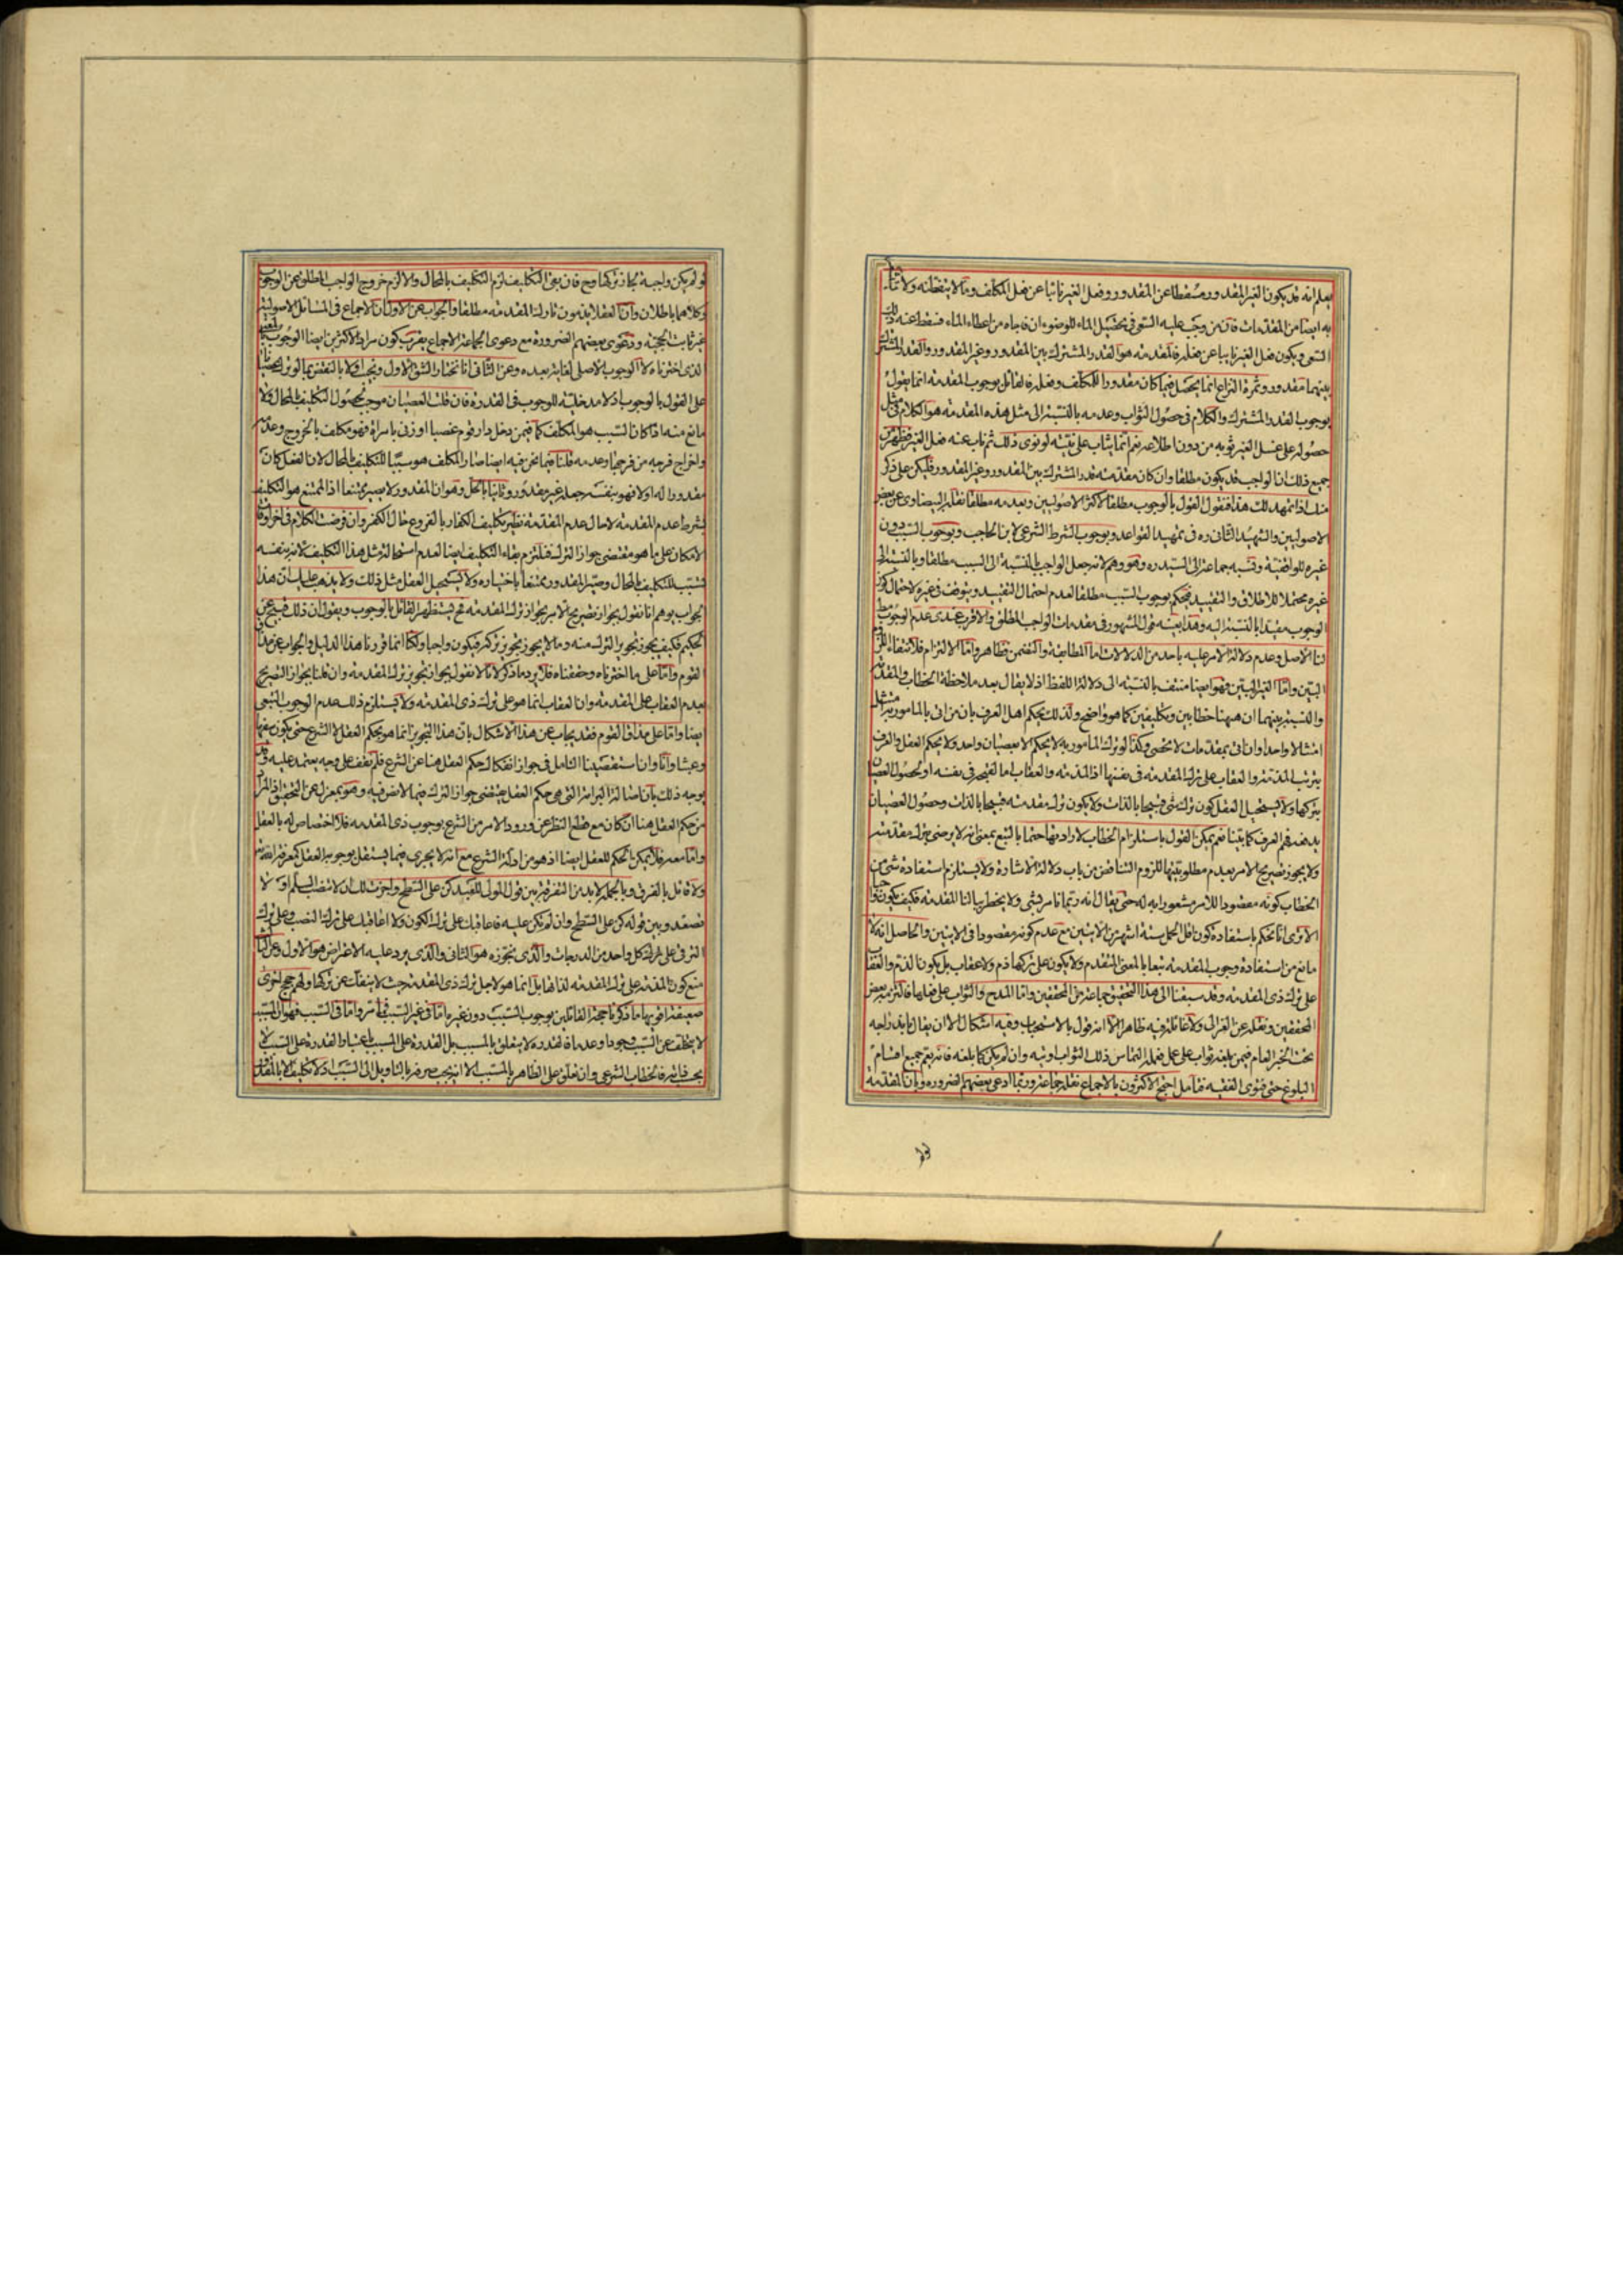 يعلم انه قد يكون الغير المقدور مسقطا عن المقدور وفعل الغير نائبا عن فعل المكلف وما لا
به ايضا من المقدمات فان من وجب عليه السعى فى تحصيل الماء للوضوء ان فاجاه من اعطاه الماء فسقط عنه ذلك
السعى ويكون فعل الغير نايبا عن فعله فالمقدمة هو القدر المشترك بين المقدور وغير المقدور والقدر المشترك
بينهما مقدور وثمرة النزاع انما يحصل فيما كان مقدورا للمكلف وفعله فالقائل بوجوب المقدمة انما يقول
بوجوب القدر المشترك والكلام فى حصول الثواب وعدمه بالنسبة الى مثل هذه المقدمة هو الكلام فى مثل
حصوله على غسل الغير ثوبه من دون اطلاعه نعم انما يثاب على نيته لو نوى ذلك ثم ناب عنه فعل الغير فظهر من
جميع ذلك ان الواجب قد يكون مطلقا وان كان مقدمته قدر المشترك بين المقدور وغير المقدور فليكن على ذكر
منك اذا تمهد لك هذا فنقول القول بالوجوب مطلقا لاكثر الاصوليين وبعدمه مطلقا نقله البيضاوى عن بعض
الاصوليين والشهيد الثانى ره فى تمهيد القواعد وبوجوب الشرط الشرعى لابن الحاجب وبوجوب السبب دون
غيره للواقفية ونسبه جماعة الى السيد ره وهو وهم لانه جعل الواجب بالنسبة الى السبب مطلقا وبالنسبة الى
غيره محتملا للاطلاق والتقييد فيحكم بوجوب السبب مطلقا لعدم احتمال التقييد ويتوقف فى غيره لاحتمال كون
الوجوب مقيدا بالنسبة اليه وهذا بعينه قول المشهور فى مقدمات الواجب المطلق والاقرب عندى عدم الوجوب مط
لنا الاصل وعدم دلالة الامر عليه باحد من الدلالات اما المطابقة والتضمن فظاهر واما الالتزام فلانتفاء اللزوم
البين واما الغير البين فهو ايضا منتف بالنسبة الى دلالة اللفظ اذ لا يقال بعد ملاحظة الخطاب والمقدمة
والنسبة بينهما ان ههنا خطابين وتكليفين كما هو واضح ولذلك يحكم اهل العرف بان من اتى بالمامور به امتثل
امتثالا واحدا وان اتى بمقدمات لا تحصى وكذا لو ترك المامور به لا يحكم الا بعصيان واحد ولا يحكم العقل والعرف
بترتب المذمة والعقاب على ترك المقدمة فى نفسها اذ المذمة والعقاب اما لقبحه فى نفسه او لحصول العصيان
بتركها ولا يستحيل العقل كون ترك شى قبيحا بالذات ولا يكون ترك مقدمته قبيحا بالذات وحصول العصيان
يدفعه فهم العرف كما بينا نعم يمكن القول باستلزام الخطاب لارادتها حتما بالتبع بمعنى انه لا يرضى بترك مقدمته
ولا يجوز تصريح الامر بعدم مطلوبيتها للزوم التناقض من باب دلالة الاشارة ولا يستلزم استفادة شى من
الخطاب كونه مقصودا للامر مشعورا به له حتى يقال انه ربما نامر بشى ولا يخطر ببالنا المقدمة فكيف يكون واجبا
الا ترى انا نحكم باستفادة كون اقل الحمل ستة اشهر من الايتين مع عدم كونه مقصودا فى الايتين والحاصل انه لا
مانع من استفادة وجوب المقدمة تبعا بالمعنى المتقدم ولا يكون على تركها ذم ولا عقاب بل يكون الذم والعقاب
على ترك ذى المقدمة وقد سبقنا الى هذا التحقيق جماعة من المحققين واما المدح والثواب على فعلها فالتزمه بعض
المحققين ونقله عن الغزالى ولا غائلة فيه ظاهرا الا انه قول بالاستحباب وفيه اشكال الا ان يقال باندراجه
تحت الخبر العام فيمن بلغه ثواب على عمل فعمله التماس ذلك الثواب اوتيه وان لم يكن كما بلغه فانه يعم جميع اقسام
البلوغ حتى فتوى الفقيه فتامل احتج الاكثرون بالاجماع نقله جماعة وربما ادعى بعضهم الضرورة وبان المقدمة
لو لم يكن واجبة لجاز تركها وح فان بقى التكليف لزم التكليف بالمحال والا لزم خروج الواجب المطلق عن الوجوب
وكلاهما باطلان وان العقلا يذمون تارك المقدمة مطلقا والجواب عن الاول ان الاجماع فى المسائل الاصولية
غير ثابت الحجية ودعوى بعضهم الضرورة مع دعوى الجماعة الاجماع يقرب كون مراد الاكثرين ايضا الوجوب بالمعنى
الذى اخترناه لا الوجوب الاصلى لغاية بعده وعن الثانى انا نختار الشق الاول ونجيب اولا بالنقض بما لو ترك عصيانا
على القول بالوجوب اذ لا مدخلية للوجوب فى القدرة فان قلت العصيان موجب لحصول التكليف بالمحال ولا
مانع منه اذا كان السبب هو المكلف كما فيمن دخل دار قوم غصبا او زنى بامراة فهو مكلف بالخروج وعدمه
واخراج فرجه من فرجها وعدمه قلنا فيما نحن فيه ايضا صار المكلف هو سببا للتكليف بالمحال لان الفعل كان
مقدورا له اولا فهو بنفسه جعله غير مقدور وثانيا بالحل وهو ان المقدور لا يصير ممتنعا اذ الممتنع هو التكليف
بشرط عدم المقدمة لا حال عدم المقدمة نظير تكليف الكفار بالفروع حال الكفر وان فرضت الكلام فى اخر اوقات
الامكان على ما هو مقتضى جواز الترك فنلتزم بقاء التكليف ايضا لعدم استحالة مثل هذا التكليف لانه بنفسه
تسبب للتكليف بالمحال وصير المقدور ممتنعا باختياره ولا يستحيل العقل مثل ذلك ولا يذهب عليك ان هذا
الجواب يوهم انا نقول بجواز تصريح الامر بجواز ترك المقدمة فح يستظهر القائل بالوجوب ويقول ان ذلك قبيح عن
الحكيم فكيف يجوز تجويز الترك منه وما لا يجوز تجويز تركه فيكون واجبا ولكنا انما قررنا هذا الدليل والجواب عن مذاق
القوم واما على ما اخترناه وحققناه فلا يرد ما ذكر لانا لا نقول بجواز تجويز ترك المقدمة وان قلنا بجواز التصريح
بعدم العقاب على المقدمة وان العقاب انما هو على ترك ذى المقدمة ولا يستلزم ذلك عدم الوجوب التبعى
ايضا واما على مذاق القوم فقد يجاب عن هذا الاشكال بان هذا التجويز انما هو بحكم العقل لا الشرع حتى يكون سفها
وعبثا وانا وان استقصينا التامل فى جواز انفكاك حكم العقل هنا عن الشرع فلم نقف على وجه يعتمد عليه وقد
يوجه ذلك بان اصالة البرائة التى هى حكم العقل يقتضى جواز الترك فيما لا نص فيه وهو بمعزل عن التحقيق اذ المراد
من حكم العقل هنا ان كان مع قطع النظر عن ورود الامر من الشرع بوجوب ذى المقدمة فلا اختصاص له بالعقل
واما معه فلا يمكن الحكم للعقل ايضا اذ هو من ادلة الشرع مع انه لا يجرى فيما يستقل بوجوبه العقل كمعرفة الله
ولا قائل بالفرق وبالجملة لا بد من التفرقة بين قول المولى للعبد كن على السطح واجزت لك ان لا تنصب السلم او لا
تصعد وبين قوله كن على السطح وان لم تكن عليه فاعاقبك على ترك الكون ولا اعاقبك على ترك النصب وعلى ترك
الترقى على كل واحد من الدرجات والذى نجوزه هو الثانى والذى يرد عليه الاعتراض هو الاول وعن الثالث
منع كون المذمة على ترك المقدمة لذاتها بل انما هو لاجل ترك ذى المقدمة حيث لا ينفك عن تركها ولهم حجج اخرى
ضعيفة اقويها ما ذكرنا حجة القائلين بوجوب السبب دون غيره اما فى غير السبب فما مر واما فى السبب فهو ان المسبب
لا يتخلف عن السبب وجودا وعدما فالقدرة لا يتعلق بالمسبب بل القدرة على المسبب باعتبار القدرة على السبب لا
بحسب ذاته فالخطاب الشرعى وان تعلق على الظاهر بالمسبب الا انه يجب صرفه بالتاويل الى السبب اذ لا تكليف الا بالمقدور